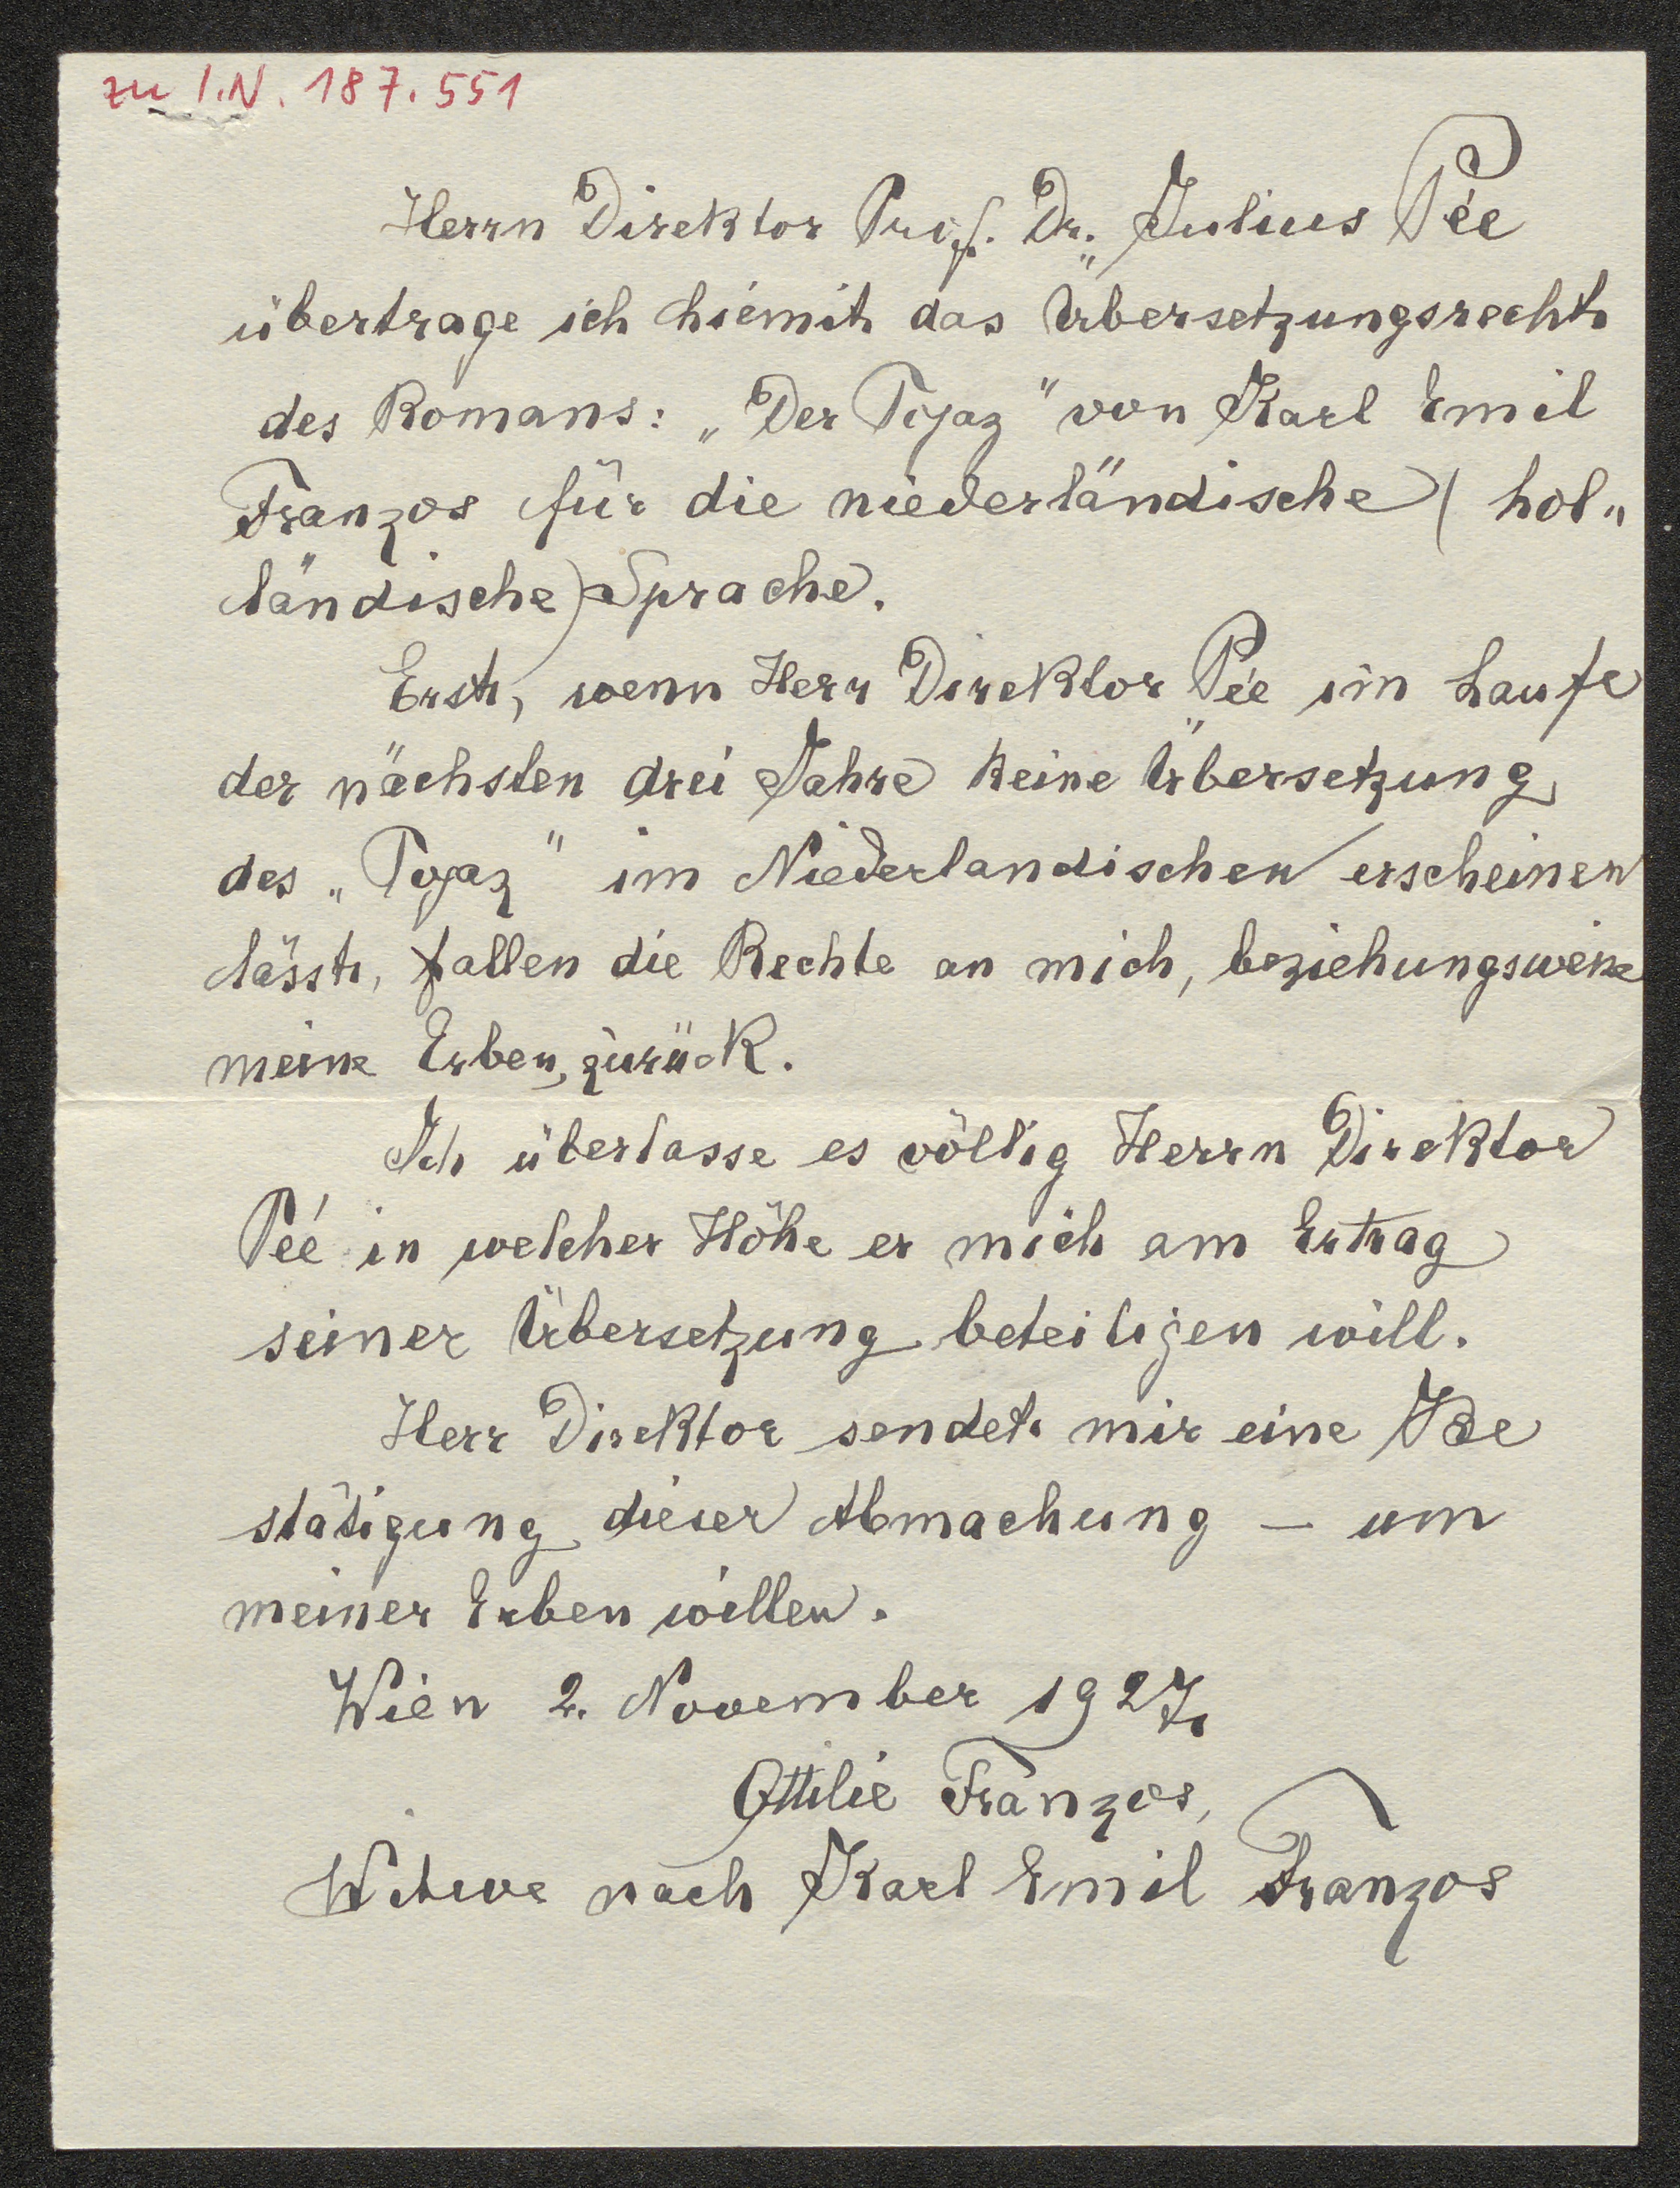 zu I.N. 187.551
Herrn Direktor Prof. Dr. Julius Pée
übertrage ich hiemit das Übersetzungsrecht
des Romans: „Der Pojaz" von Karl Emil
Franzos für die niederländische (hol„
ländische) Sprache.
Erst, wenn Herr Direktor Pée im Laufe
der nächsten drei Jahre keine Übersetzung
des „Pojaz" im Niederlandischen erscheinen
lässt, fallen die Rechte an mich, beziehungsweise
meine Erben, zurück.
Ich überlasse es völlig Herrn Direktor
Pée in welcher Höhe er mich am Ertrag
seiner Übersetzung beteiligen will.
Herr Direktor sendet mir eine Be
stätigung dieser Abmachung – um
meiner Erben willen.
Wien 2. November 1927.
Ottilie Franzos,
Witwe nach Karl Emil Franzos